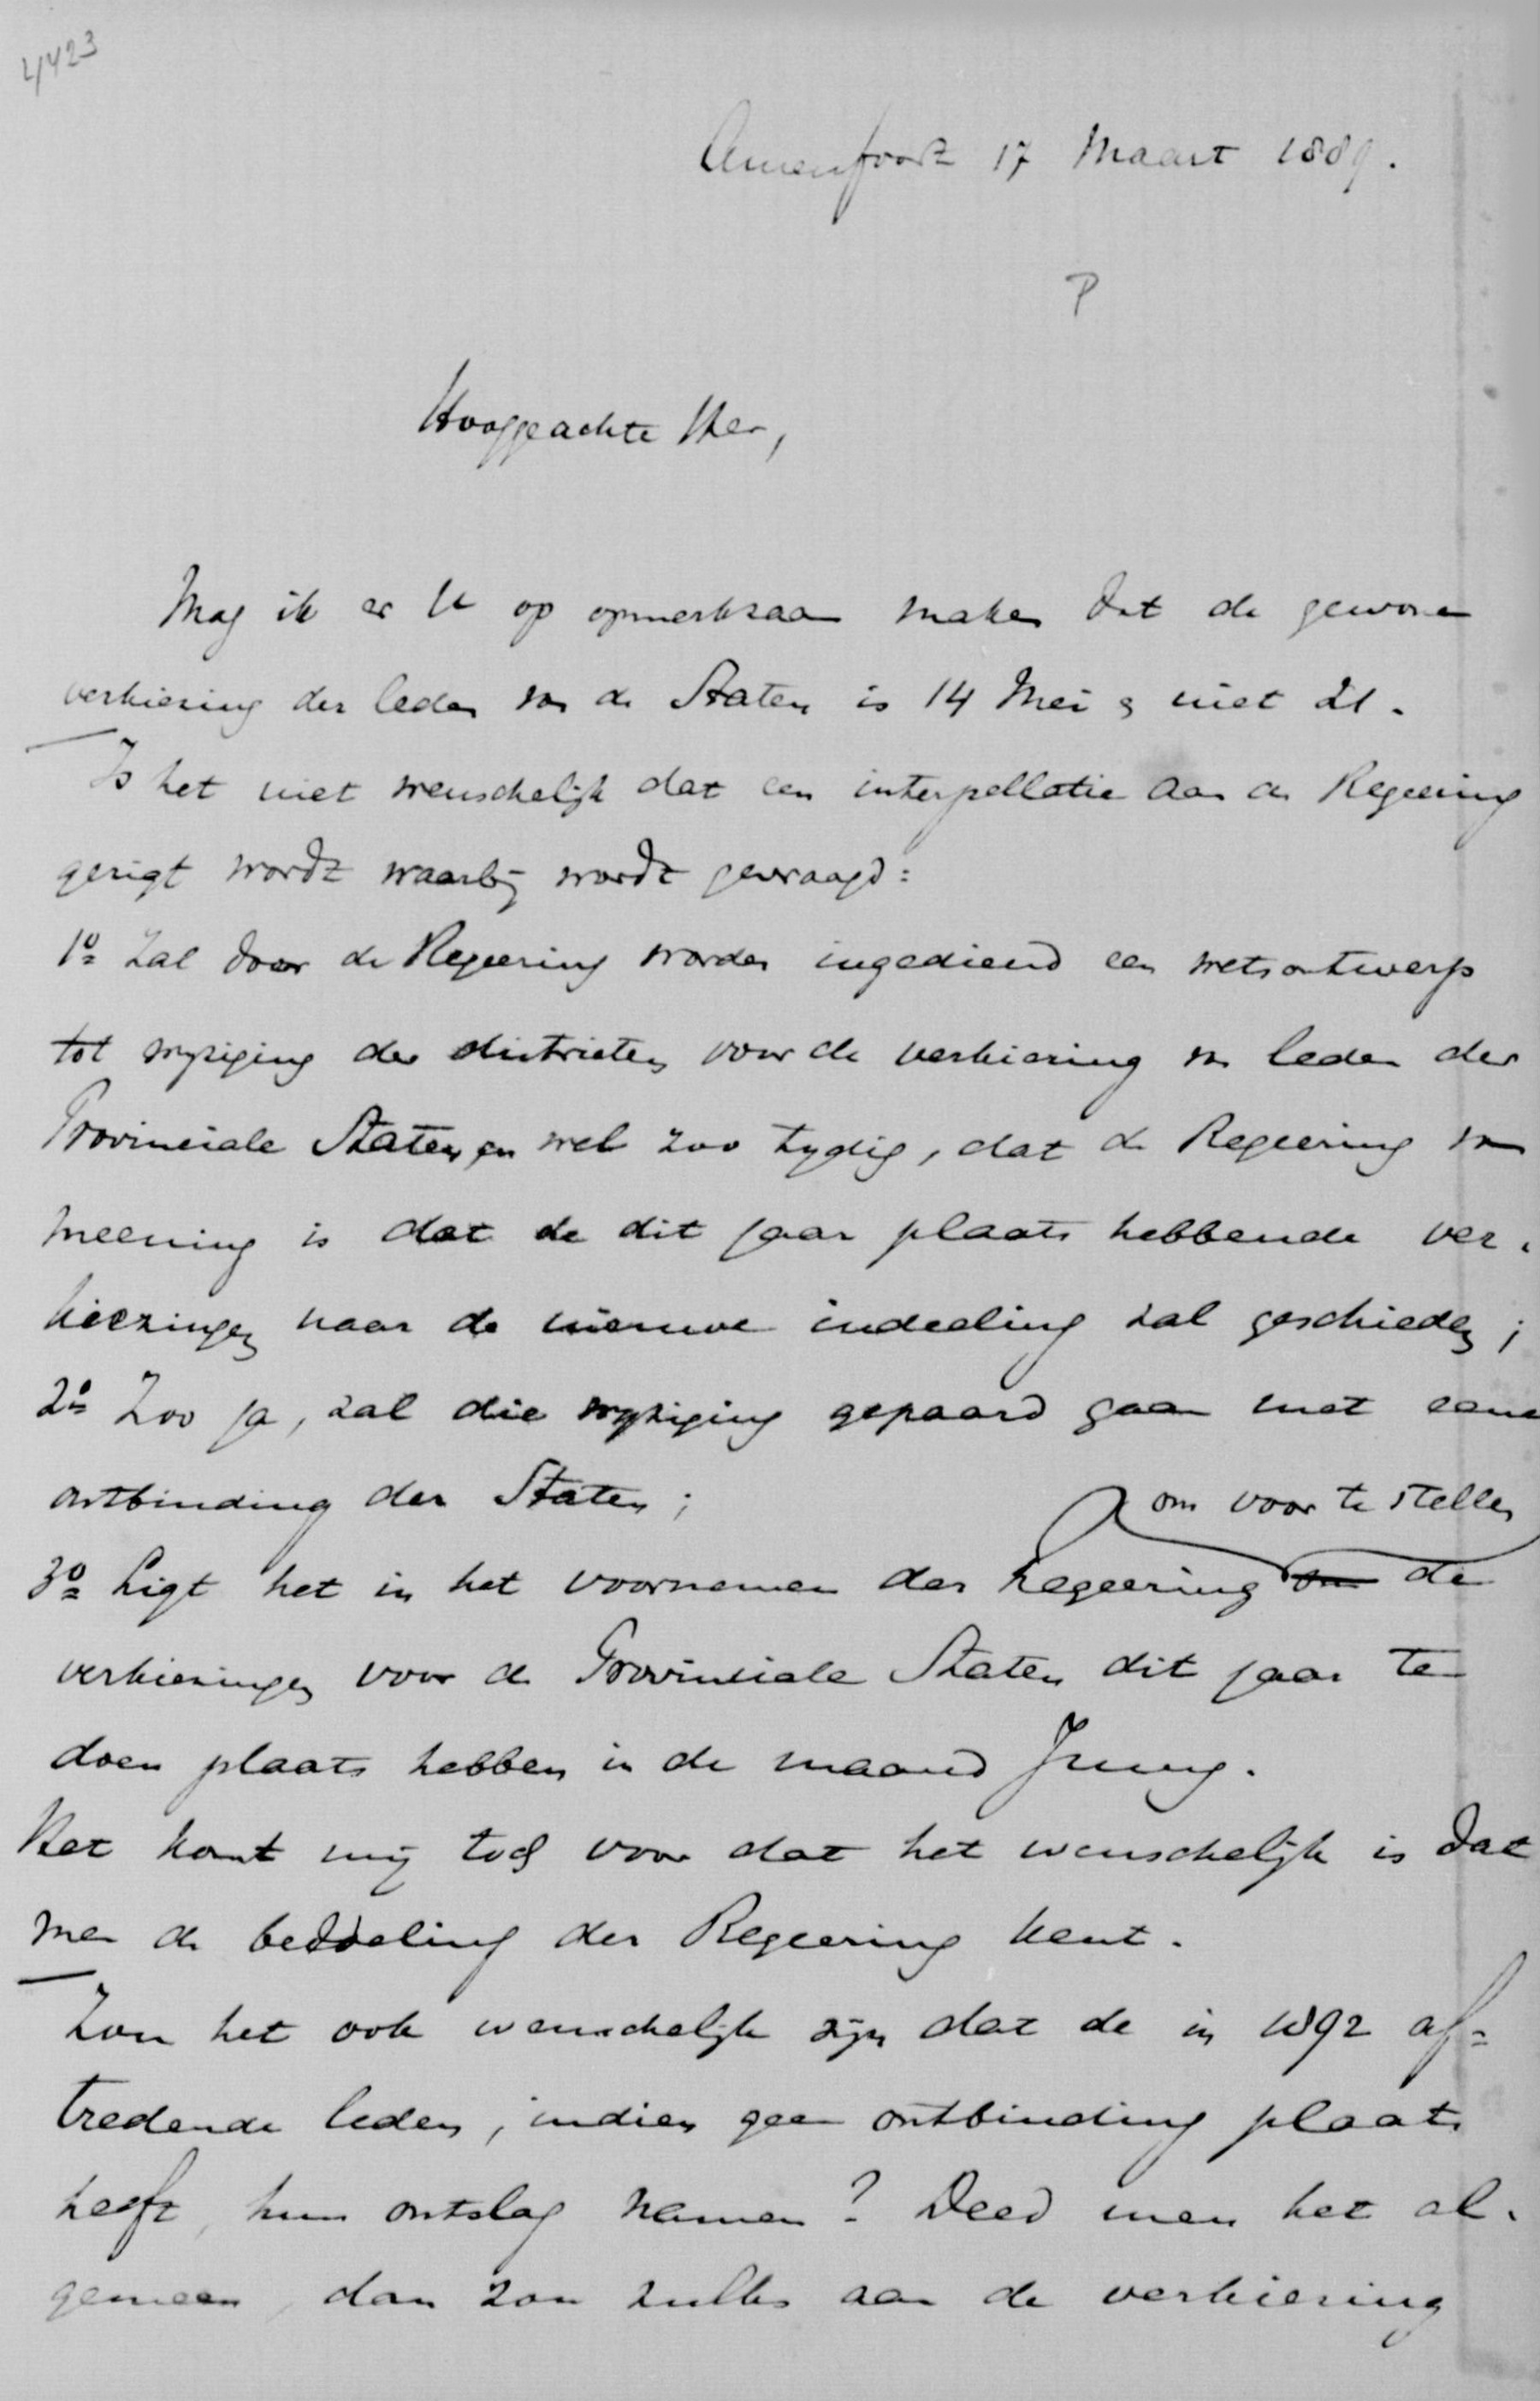 4423
Amersfoort 17 Maart 1889.
P
Hooggeachte Heer,
Mag ik er U op opmerkzaam maken dat de gewone
verkiezing der leden van de Staten is 14 Mei & niet 21.
Is het niet wenschelijk dat een interpellatie aan de Regeering
gerigt wordt waarbij wordt gevraagd:
1o Zal door de Regeering worden ingediend een wetsontwerp
tot wijziging der districten voor de verkiezing van leden der
Provinciale Staten, en wel zoo tijdig, dat de Regeering van
meening is dat de dit jaar plaats hebbende ver-
kiezingen naar de nieuwe indeeling zal geschieden;
2o Zoo ja, zal die wijziging gepaard gaan met eene
ontbinding der Staten;
om voor te stellen
3o Ligt het in het voornemen der Regeering om de
verkiezingen voor de Provinciale Staten dit jaar te
doen plaats hebben in de maand Juny.
Het komt mij toch voor dat het wenschelijk is dat
men de bedoeling der Regeering kent.
Zou het ook wenschelijk zijn dat de in 1892 af=
tredende leden, indien geen ontbinding plaats
heeft, hun ontslag namen? Deed men het al-
gemeen, dan zou zulks aan de verkiezing